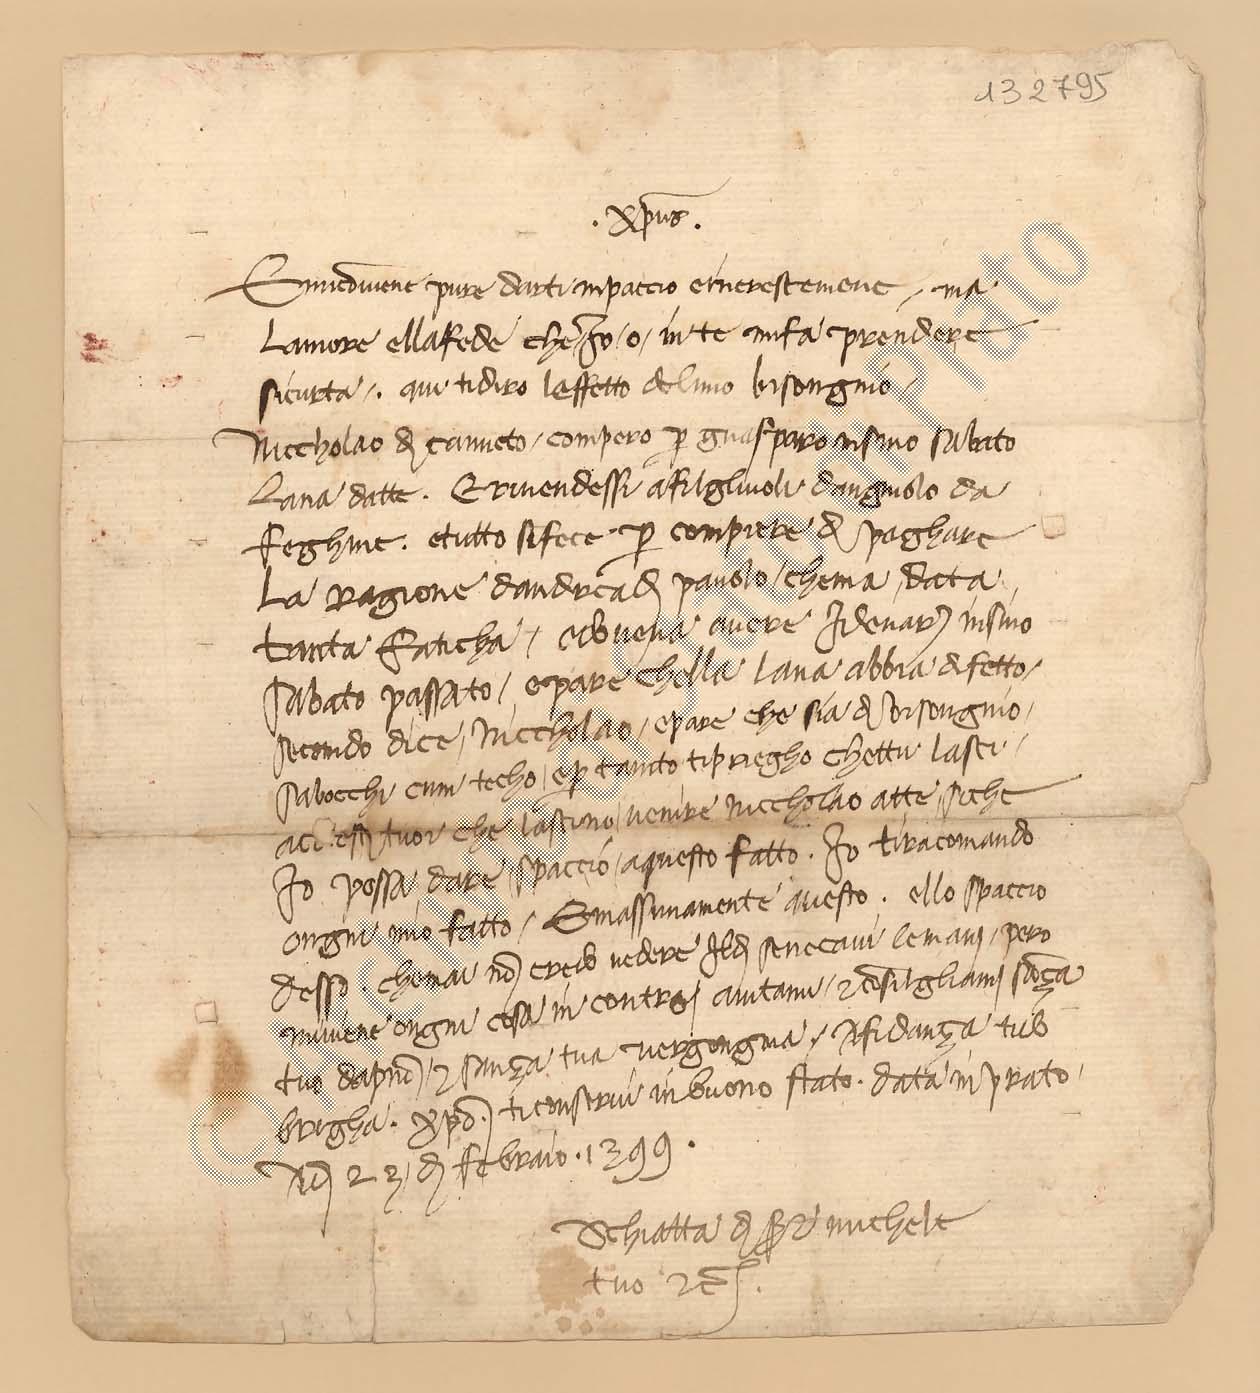 132795
. xpus .
E mi conviene pure darti inpaccio e increscemene / ma
lamore ella fede che Jo / o / in te mi fa prendere
sicurta / . qui ti diro leffetto del mio bisongnio /
Niccholao di canneto / compero per guasparo insino sabato
Lana datte . E rivendessi a filgliuoli dangniolo da
feghine . e tutto si fece per compiere di paghare
La ragione dandrea di pauolo / chema data
tanta faticha / e doveva avere J denari insino
sabato passato / e pare chella lana abbia difetto /
secondo dice / Niccholao / e pare che sia di bisongnio /
sabocchi cum techo / e per tanto ti priegho chettu lasci /
tuoi che lascino / venire Niccholao atte / siche
Jo possa dare / spaccio / a questo fatto . Jo ti racomando
ongni mio fatto / E massimamente questo . ello spaccio
desso . chemai non credo vedere Jl di senecavi le mani / pero
mi viene ongni cosa in contro / aiutami / e consilgliami sança
tuo dapno / e sança tua vergongnia / A fidança ti do
bregha . xpo ti conservi in buono stato . data in prato /
Adi 23 / di febraio . 1399 .
Schiatta di ser michele
tuo etc .